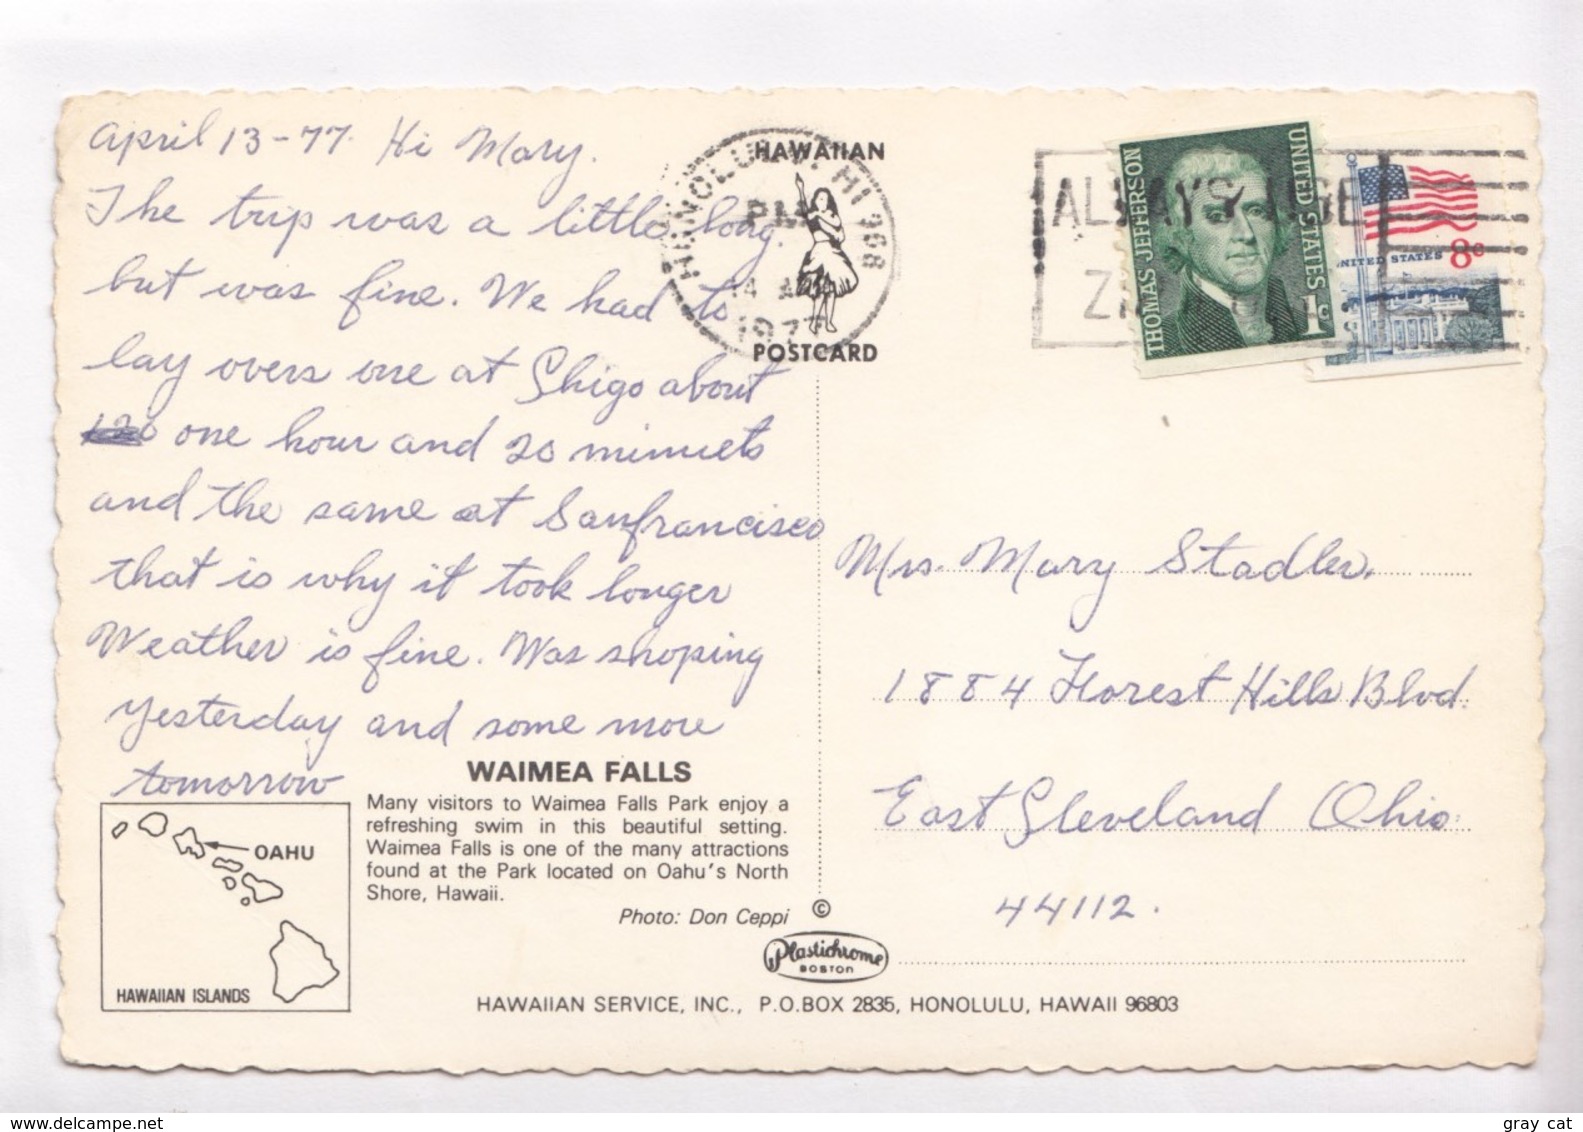 April 13-77. Hi Mary.
The trip was a little long.
but was fine. We had to
lay overs one at Shigo about
120 one hour and 20 minuets
and the same at Sanfrancisco
that is why it took longer
Weather is fine. Was shoping
yesterday and some more
tomorrow
WAIMEA FALLS
Many visitors to Waimea Falls Park enjoy a
refreshing swim in this beautiful setting.
Waimea Falls is one of the many attractions
found at the Park located on Oahu's North
Shore, Hawaii.
Photo: Don Ceppi
©
OAHU
HAWAIIAN ISLANDS
Plastichrome
BOSTON
HAWAIIAN SERVICE, INC., P.O.BOX 2835, HONOLULU, HAWAII 96803
HAWAIIAN
POSTCARD
HONOLULU, HI 968
PM
14 APR
1977
ALWAYS USE
THOMAS JEFFERSON
UNITED STATES
1c
UNITED STATES 8c
Mrs. Mary Stadler.
1884 Forest Hills Blvd.
East Cleveland Ohio
44112.
gray cat